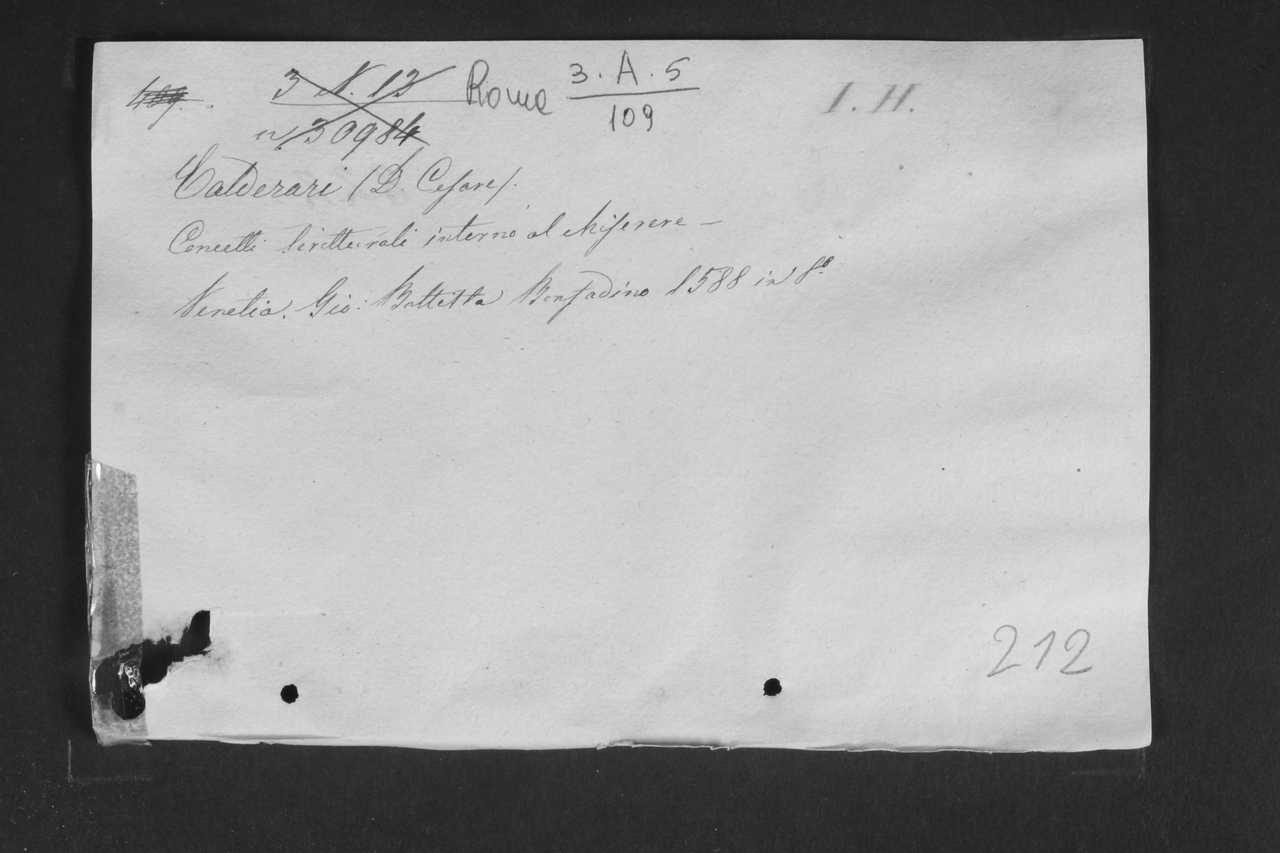 3 N. 12 Roma 3. A. 5
109
n 30984
I. H.
Calderari (D. Cesare).
Concetti Scritturali intorno al Miserere —
Venetia. Gio: Battetta Bonfadino 1588 in 8º
212